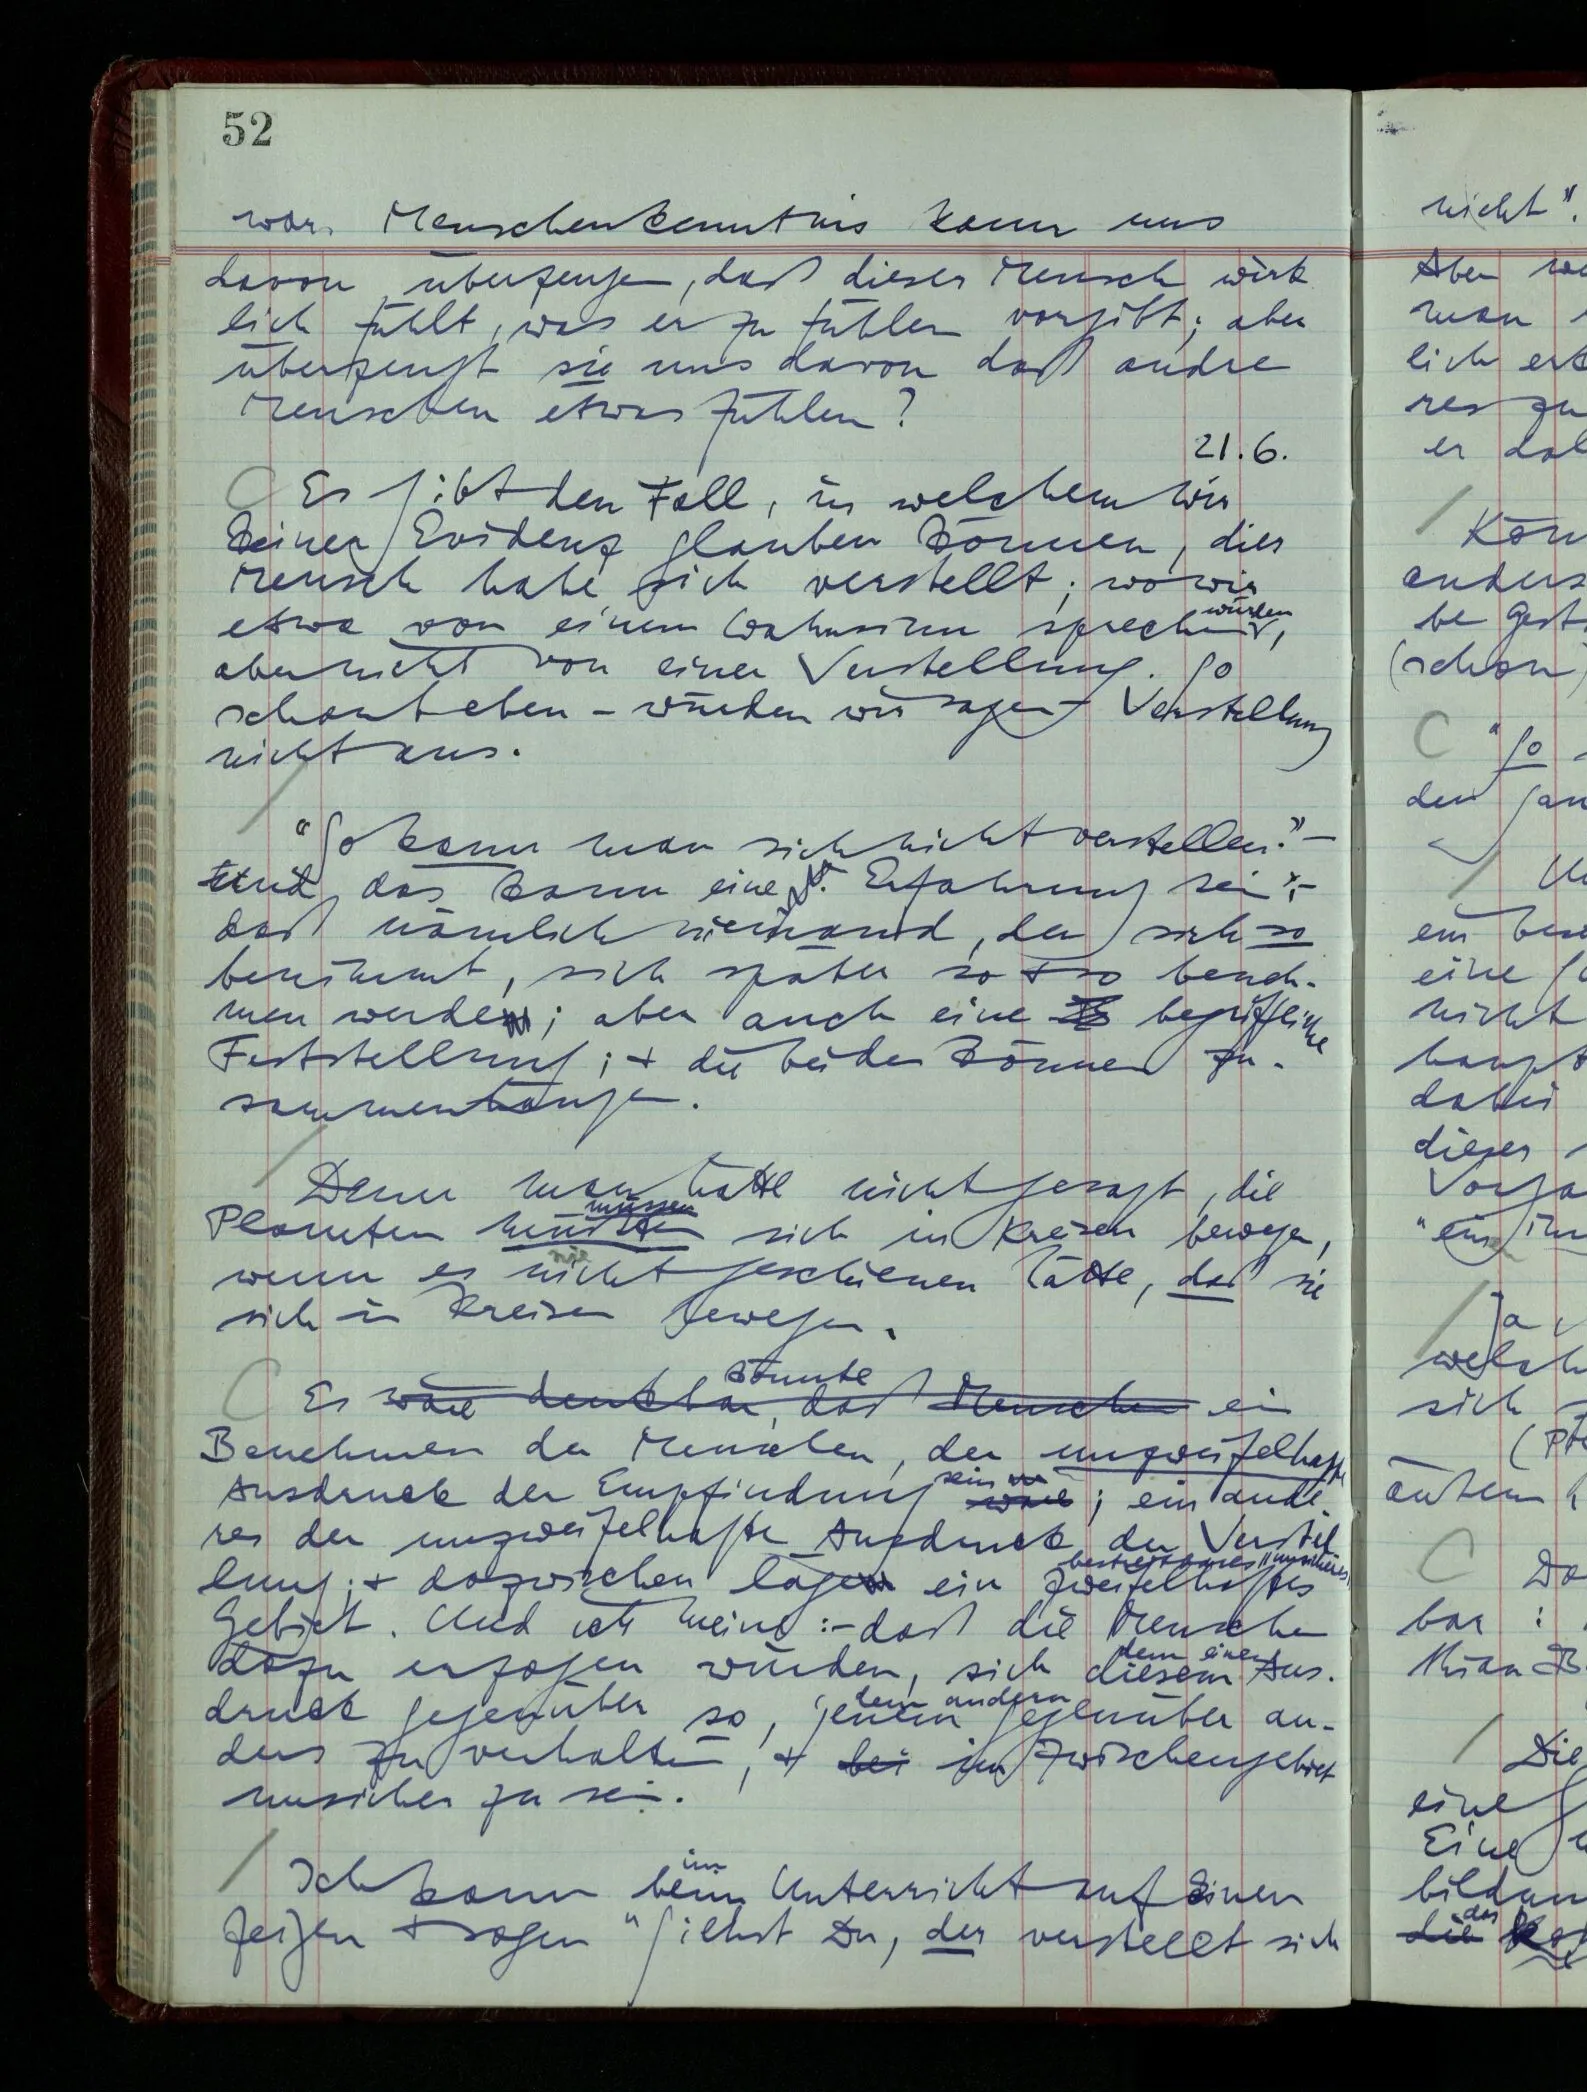 52
war. Menschenkenntnis kann uns
davon überzeugen, daß dieser Mensch wirk
lich fühlt, was er zu fühlen vorgibt; aber
überzeugt sie uns davon daß andre
Menschen etwas fühlen?
21.6.
C Es gibt den Fall, in welchem wir
keiner Evidenz glauben können, dieser
Mensch habe sich verstellt; wo wir
etwa von einem Wahnsinn sprechen würden,
aber nicht von einer Verstellung. So
schaut eben – würden wir sagen – Verstellung
nicht aus.
/ “So kann man sich nicht verstellen.” –
Und das kann eine Erfahrung sein –
daß nämlich niemand, der sich so
benimmt, sich später so + so beneh-
men werde; aber auch eine begriffliche
Feststellung; + die beiden können zu-
sammenhängen.
/ Denn man hätte nicht gesagt, die
Planeten müßten müssen sich in Kreisen bewegen,
wenn es nicht nie geschienen hätte, daß sie
sich in Kreisen bewegen.
C Es wäre denkbar, daß Menschen könnte ein
Benehmen der Menschen, der unzweifelhafte
Ausdruck der Empfindung wäre sein; ein ande-
res der unzweifelhafte Ausdruck der Verstel
lung; + dazwischen läge ein zweifelhaftes bestreitbares
Gebiet. Und ich meine: – daß die Menschen
dazu erzogen würden, sich diesem dem einen Aus-
druck gegenüber so, jenem dem andern gegenüber an-
ders zu verhalten, + bei im Zwischengebiet
unsicher zu sein.
/ Ich kann beim im Unterricht auf Einen
zeigen + sagen “Siehst Du, der verstellt sich
nicht”.
Aber
man
lich
er
/
anders
(schon)
C “So
/
eine
nicht
dabei
dieser
/ Ja
sich
C
bar :
/ Die
eine
Eine
die das